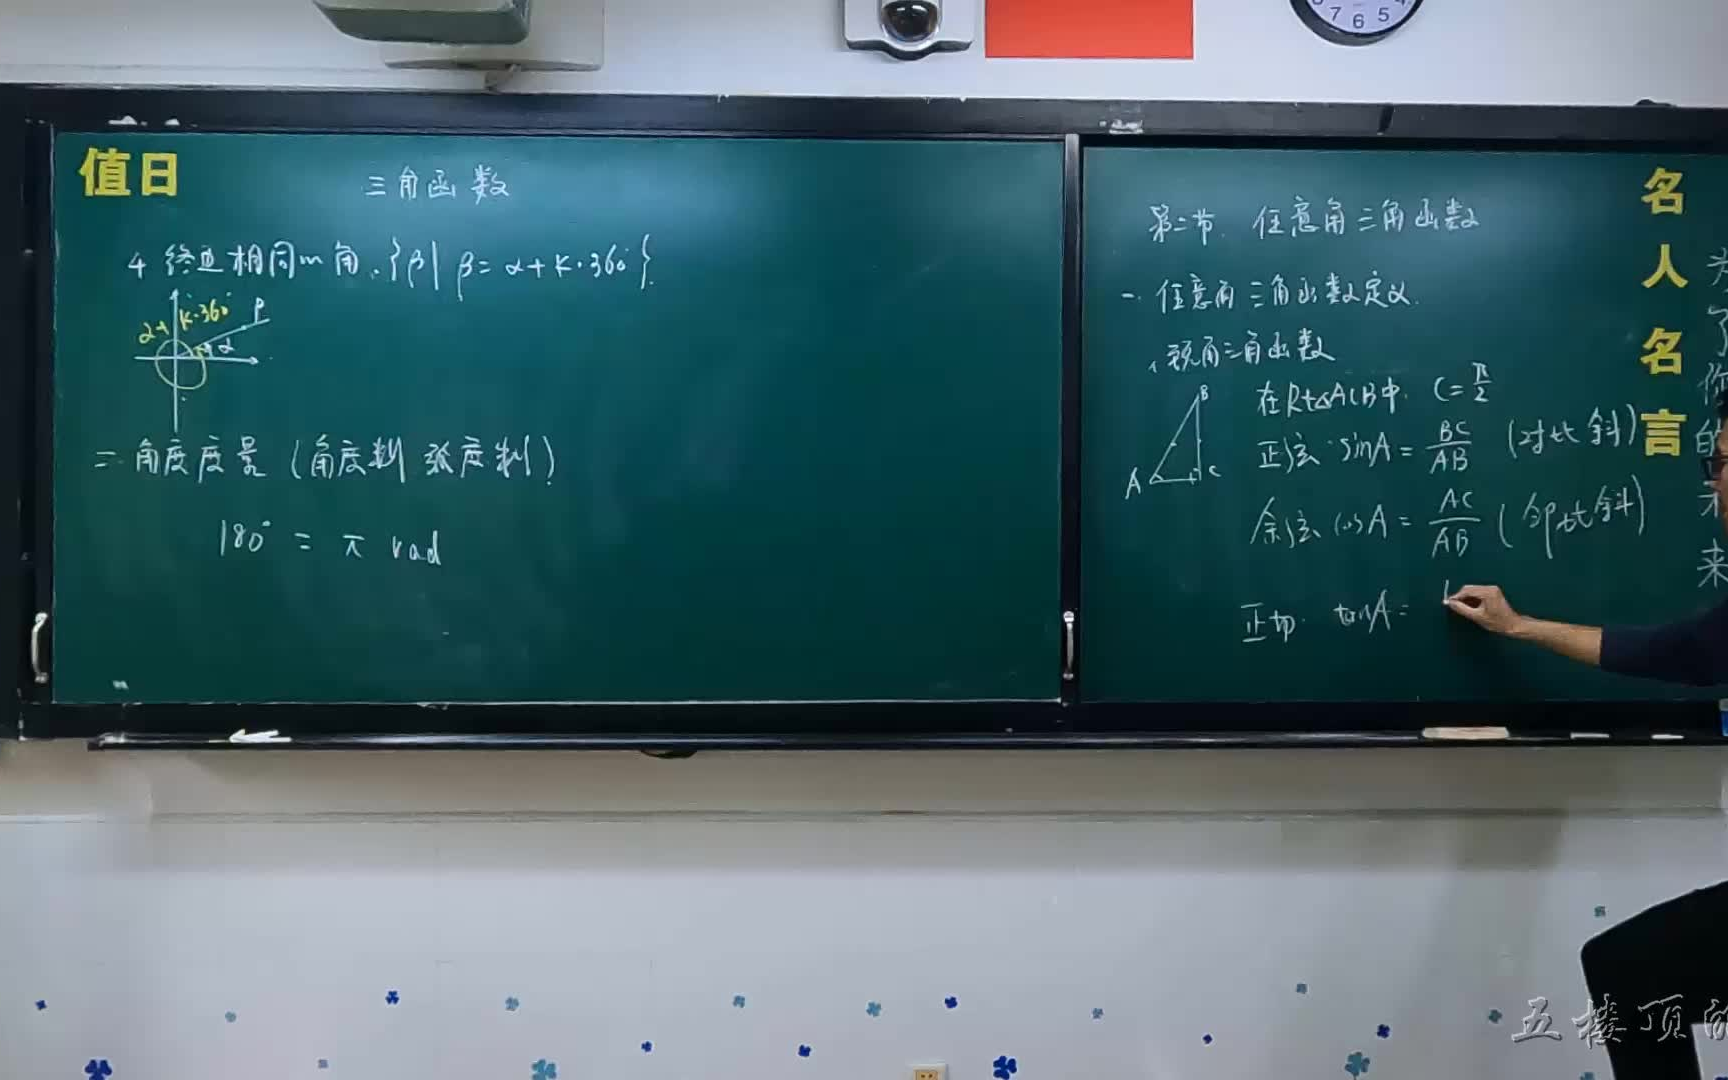 值日
三角函数
4 终边相同的角. {β| β = α + K·360°}.
α+ K·360° P
α
二 角度度量 (角度制 弧度制)
180° = π rad
第二节. 任意角三角函数
一. 任意角三角函数定义.
1. 锐角三角函数
在Rt△ACB中. C = π/2
B
A C
正弦 sinA = BC/AB (对比斜)
余弦 cosA = AC/AB (邻比斜)
正切. tanA =
名人名言
为了你的未来
7 6 5
五楼顶的